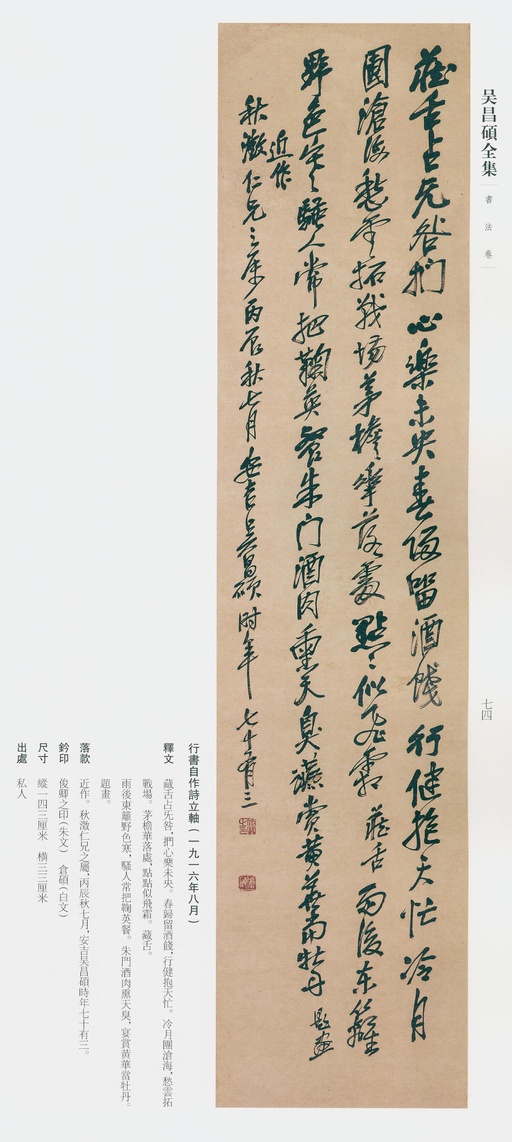 吴昌碩全集
書法卷
七四
藏舌占无咎捫心樂未央春歸留酒餞行健抱天忙冷月
團滄海愁雲拓戰場茅檐華落處點點似飛霜藏舌雨後東籬
野色寒騷人常把鞠英餐朱门酒肉熏天臭宴赏黄華當牡丹題畫
近作
秋澂仁兄之属丙辰秋七月安吉吴昌碩时年七十有三
行書自作詩立軸（一九一六年八月）
釋文 藏舌占先咎，捫心樂未央。春歸留酒餞，行健抱天忙。冷月團滄海，愁雲拓
戰場。茅檐華落處，點點似飛霜。藏舌。
雨後東籬野色寒，騷人常把鞠英餐。朱門酒肉熏天臭，宴賞黃華當牡丹。
題畫。
落款 近作。秋澂仁兄之屬，丙辰秋七月，安吉吴昌碩時年七十有三。
鈐印 俊卿之印（朱文） 倉碩（白文）
尺寸 縱一四三厘米 橫三三厘米
出處 私人